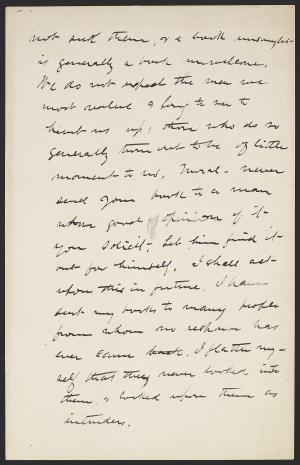 not seek them, & a book unsought
is generally a book unwelcome.
We do not expect the men we
most value & long to see to
hunt us up; those who do so
generally turn out to be of little
moment to us. Moral - never
send your book to a man
whose good opinion of it
you solicit. Let him find it
out for himself. I shall act
upon this in future. I have
sent my books to many people
from whom no response has
ever come back. I flatter my-
self that they never looked into
them, & looked upon them as
intruders.